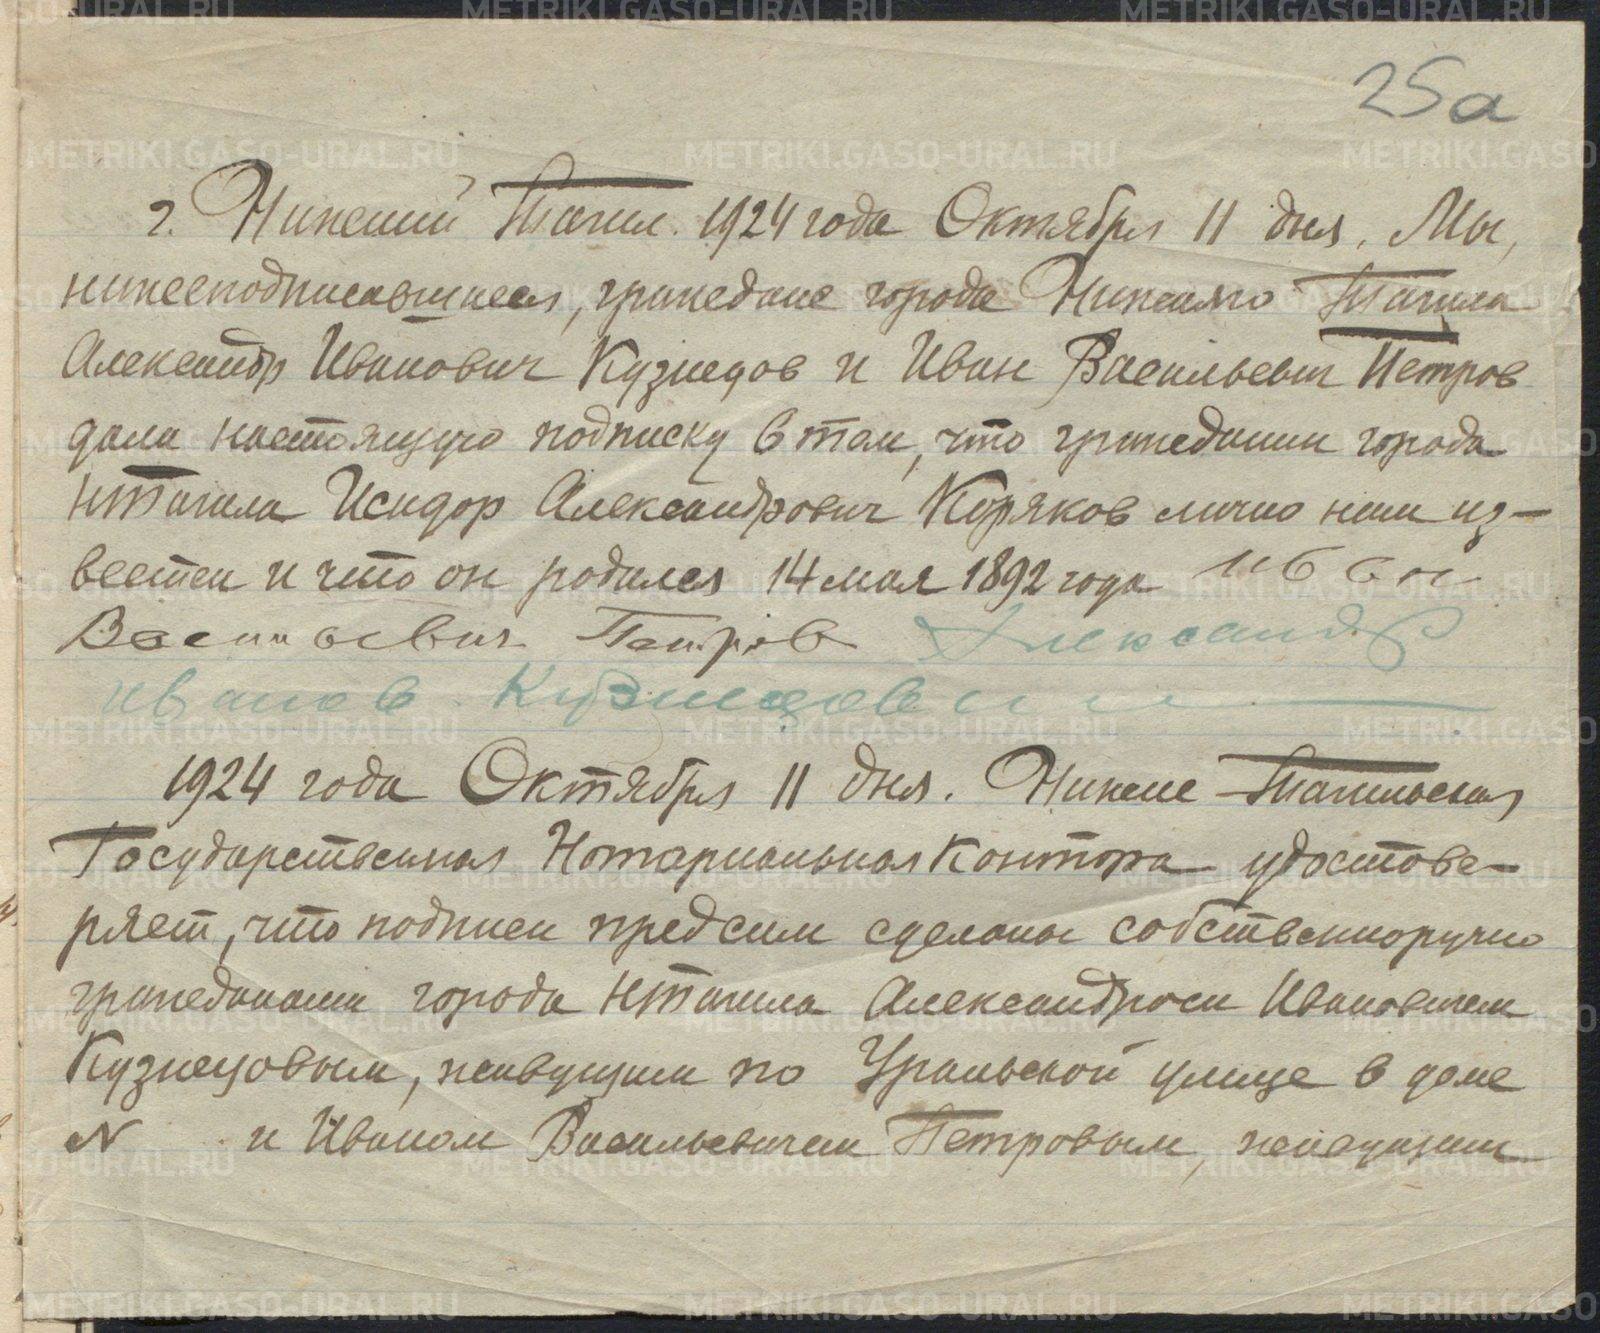 25а
г. Нижний Тагил. 1924 года Октября 11 дня. Мы,
нижеподписавшиеся, граждане города Нижнего Тагила
Александр Иванович Кузнецов и Иван Васильевич Петров
дали настоящую подписку в том, что гражданин города
НТагила Исидор Александрович Коряков лично нам из-
вестен и что он родился 14 мая 1892 года Иван
Васильевич Петров Александр
Иванов Кузнецов
1924 года Октября 11 дня. Нижне-Тагильская
Государственная Нотариальная Контора удостове-
ряет, что подписи пред сим сделаны собственноручно
гражданами города НТагила Александром Ивановичем
Кузнецовым, живущим по Уральской улице в доме
N и Иваном Васильевичем Петровым, живущим
METRIKI.GASO-URAL.RU